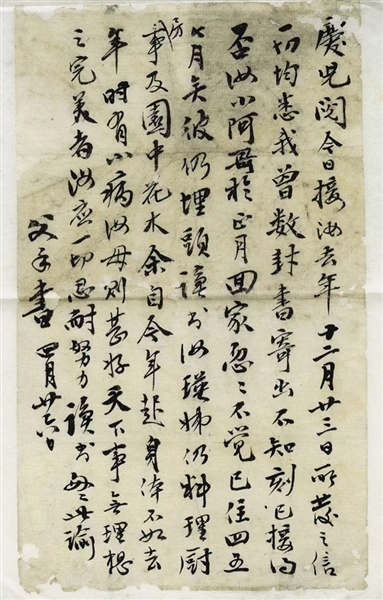 慶兒閱今日接汝去年十二月廿三日所發之信
一切均悉我曾數封書寄出不知刻已接得
否汝小阿哥於正月回家忽〻不覺已住四五
个月矣彼仍埋頭讀书汝瑛姊仍料理厨
房事及園中花木余自今年起身体不如去
年時有小病汝母則甚好天下事無理想
之完美者汝應一切忍耐努力讀书 此諭
父手書 四月廿六日